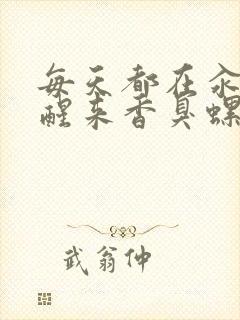 每天都在汆
醒来香臭螺
武翁仲